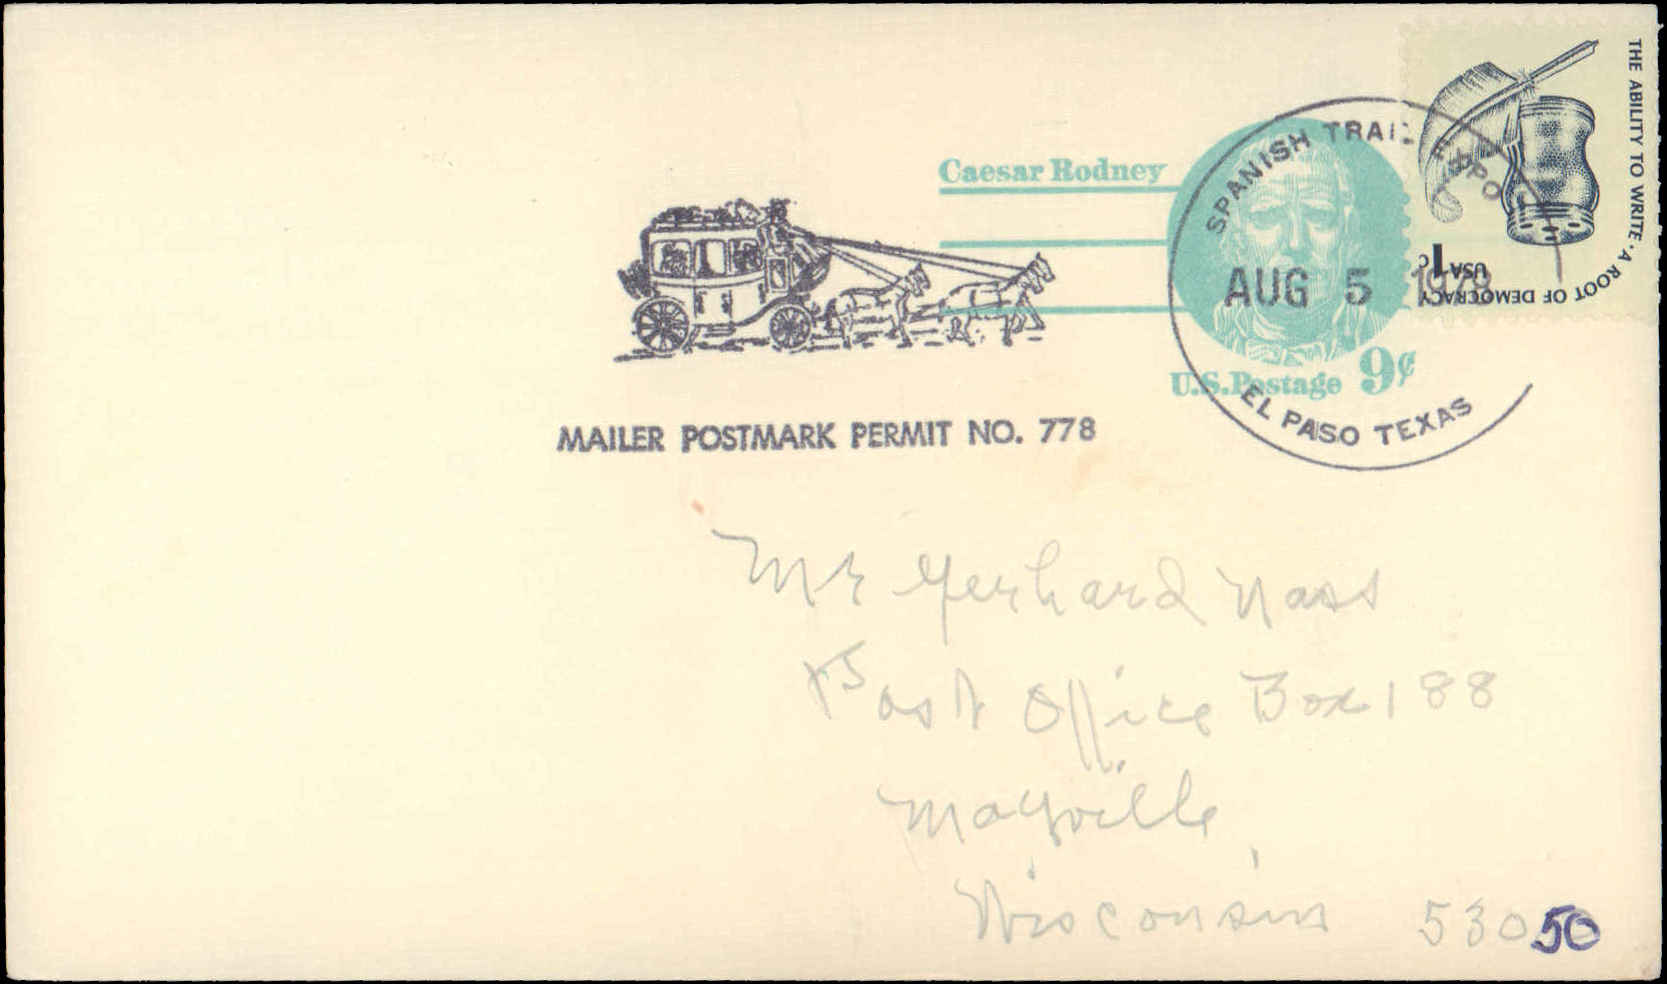 THE ABILITY TO WRITE · A ROOT OF DEMOCRACY
USA 1c
Caesar Rodney
U.S. Postage 9¢
SPANISH TRAIL EXPO
AUG 5 1978
EL PASO TEXAS
MAILER POSTMARK PERMIT NO. 778
Mr Gerhard Nass
Post Office Box 188
Mayville,
Wisconsin 53050